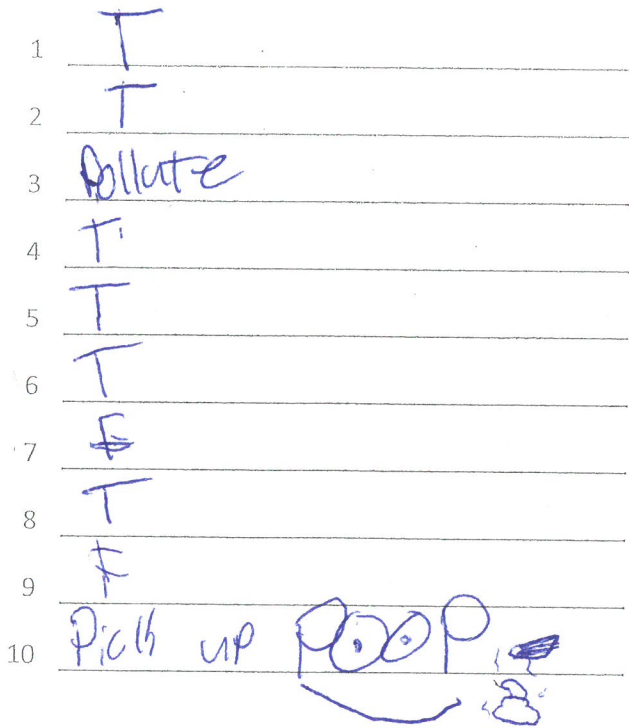 1 T
2 T
3 Pollute
4 T
5 T
6 T
7 F
8 T
9 F
10 Pick up POOP